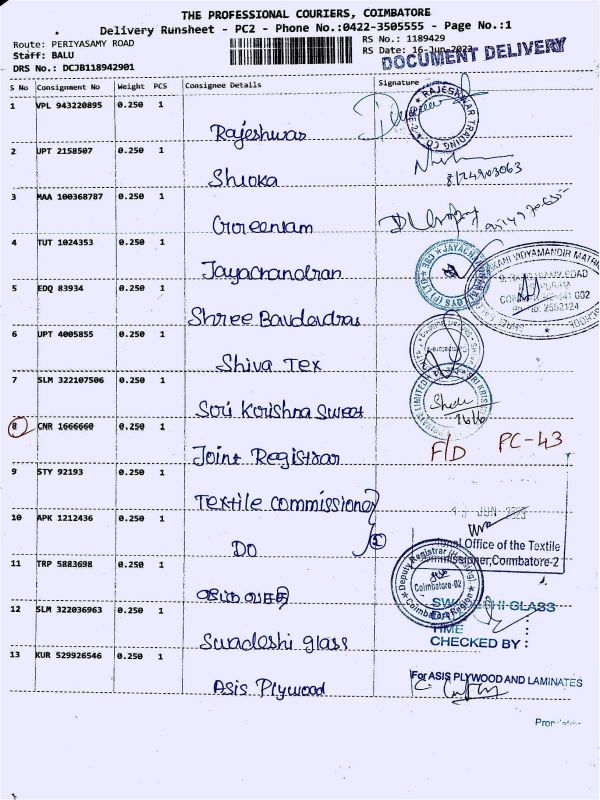 THE PROFESSIONAL COURIERS, COIMBATORE
Delivery Runsheet - PC2 - Phone No.:0422-3505555 - Page No.:1
Route: PERIYASAMY ROAD
Staff: BALU
DRS No.: DCJB118942901
RS No.: 1189429
RS Date: 16-Jun-2023
DOCUMENT DELIVERY
S No Consignment No Weight PCS Consignee Details Signature
1 VPL 943220895 0.250 1
Rajeshwar
RAJESHWAR TRADING CO
2 UPT 2158507 0.250 1
Shloka
8124903063
3 MAA 100368787 0.250 1
Greenlam
4 TUT 1024353 0.250 1
Jayachandran
5 EDQ 83934 0.250 1
VIDYAMANDIR MATRIC
SCHOOL
Ph: 2552124
6 UPT 4005855 0.250 1
Shiva Tex
7 SLM 322107506 0.250 1
Sri Krishna Sweet
SRI KRIS
PRIVATE LIMITED
16/6
8 CNR 1666660 0.250 1
Joint Registrar
F/D PC-43
9 STY 92193 0.250 1
Textile Commissioner
JUN 2023
10 APK 1212436 0.250 1
DO
2
Office of the Textile
Commissioner, Coimbatore-2
11 TRP 5883698 0.250 1
Deputy Registrar (Housing)
Coimbatore-02
Coimbatore Region
12 SLM 322036963 0.250 1
Swadeshi glass
SWADESHI GLASS
TIME
CHECKED BY :
13 KUR 529926546 0.250 1
Asis Plywood
For ASIS PLYWOOD AND LAMINATES